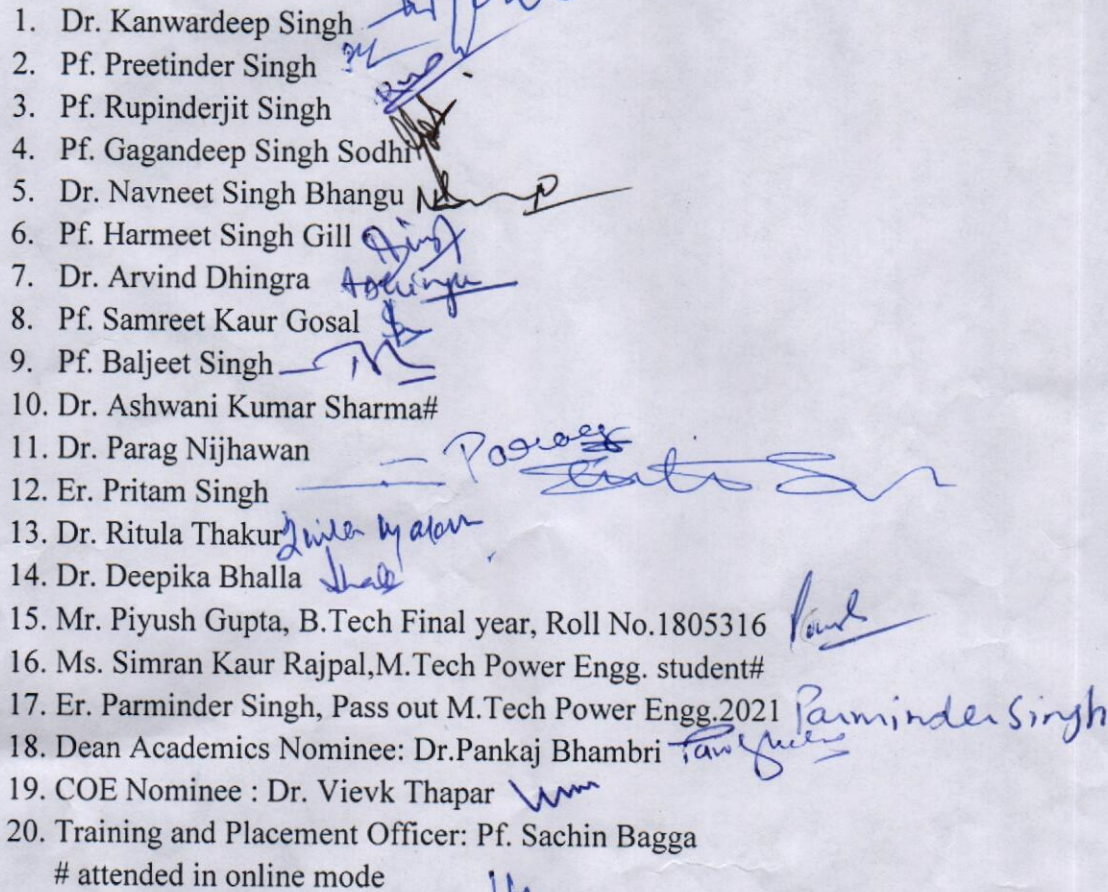 1. Dr. Kanwardeep Singh
2. Pf. Preetinder Singh
3. Pf. Rupinderjit Singh
4. Pf. Gagandeep Singh Sodhi
5. Dr. Navneet Singh Bhangu
6. Pf. Harmeet Singh Gill
7. Dr. Arvind Dhingra
8. Pf. Samreet Kaur Gosal
9. Pf. Baljeet Singh
10. Dr. Ashwani Kumar Sharma#
11. Dr. Parag Nijhawan Parag
12. Er. Pritam Singh
13. Dr. Ritula Thakur
14. Dr. Deepika Bhalla
15. Mr. Piyush Gupta, B.Tech Final year, Roll No.1805316
16. Ms. Simran Kaur Rajpal,M.Tech Power Engg. student#
17. Er. Parminder Singh, Pass out M.Tech Power Engg.2021 Parminder Singh
18. Dean Academics Nominee: Dr.Pankaj Bhambri
19. COE Nominee : Dr. Vievk Thapar
20. Training and Placement Officer: Pf. Sachin Bagga
# attended in online mode